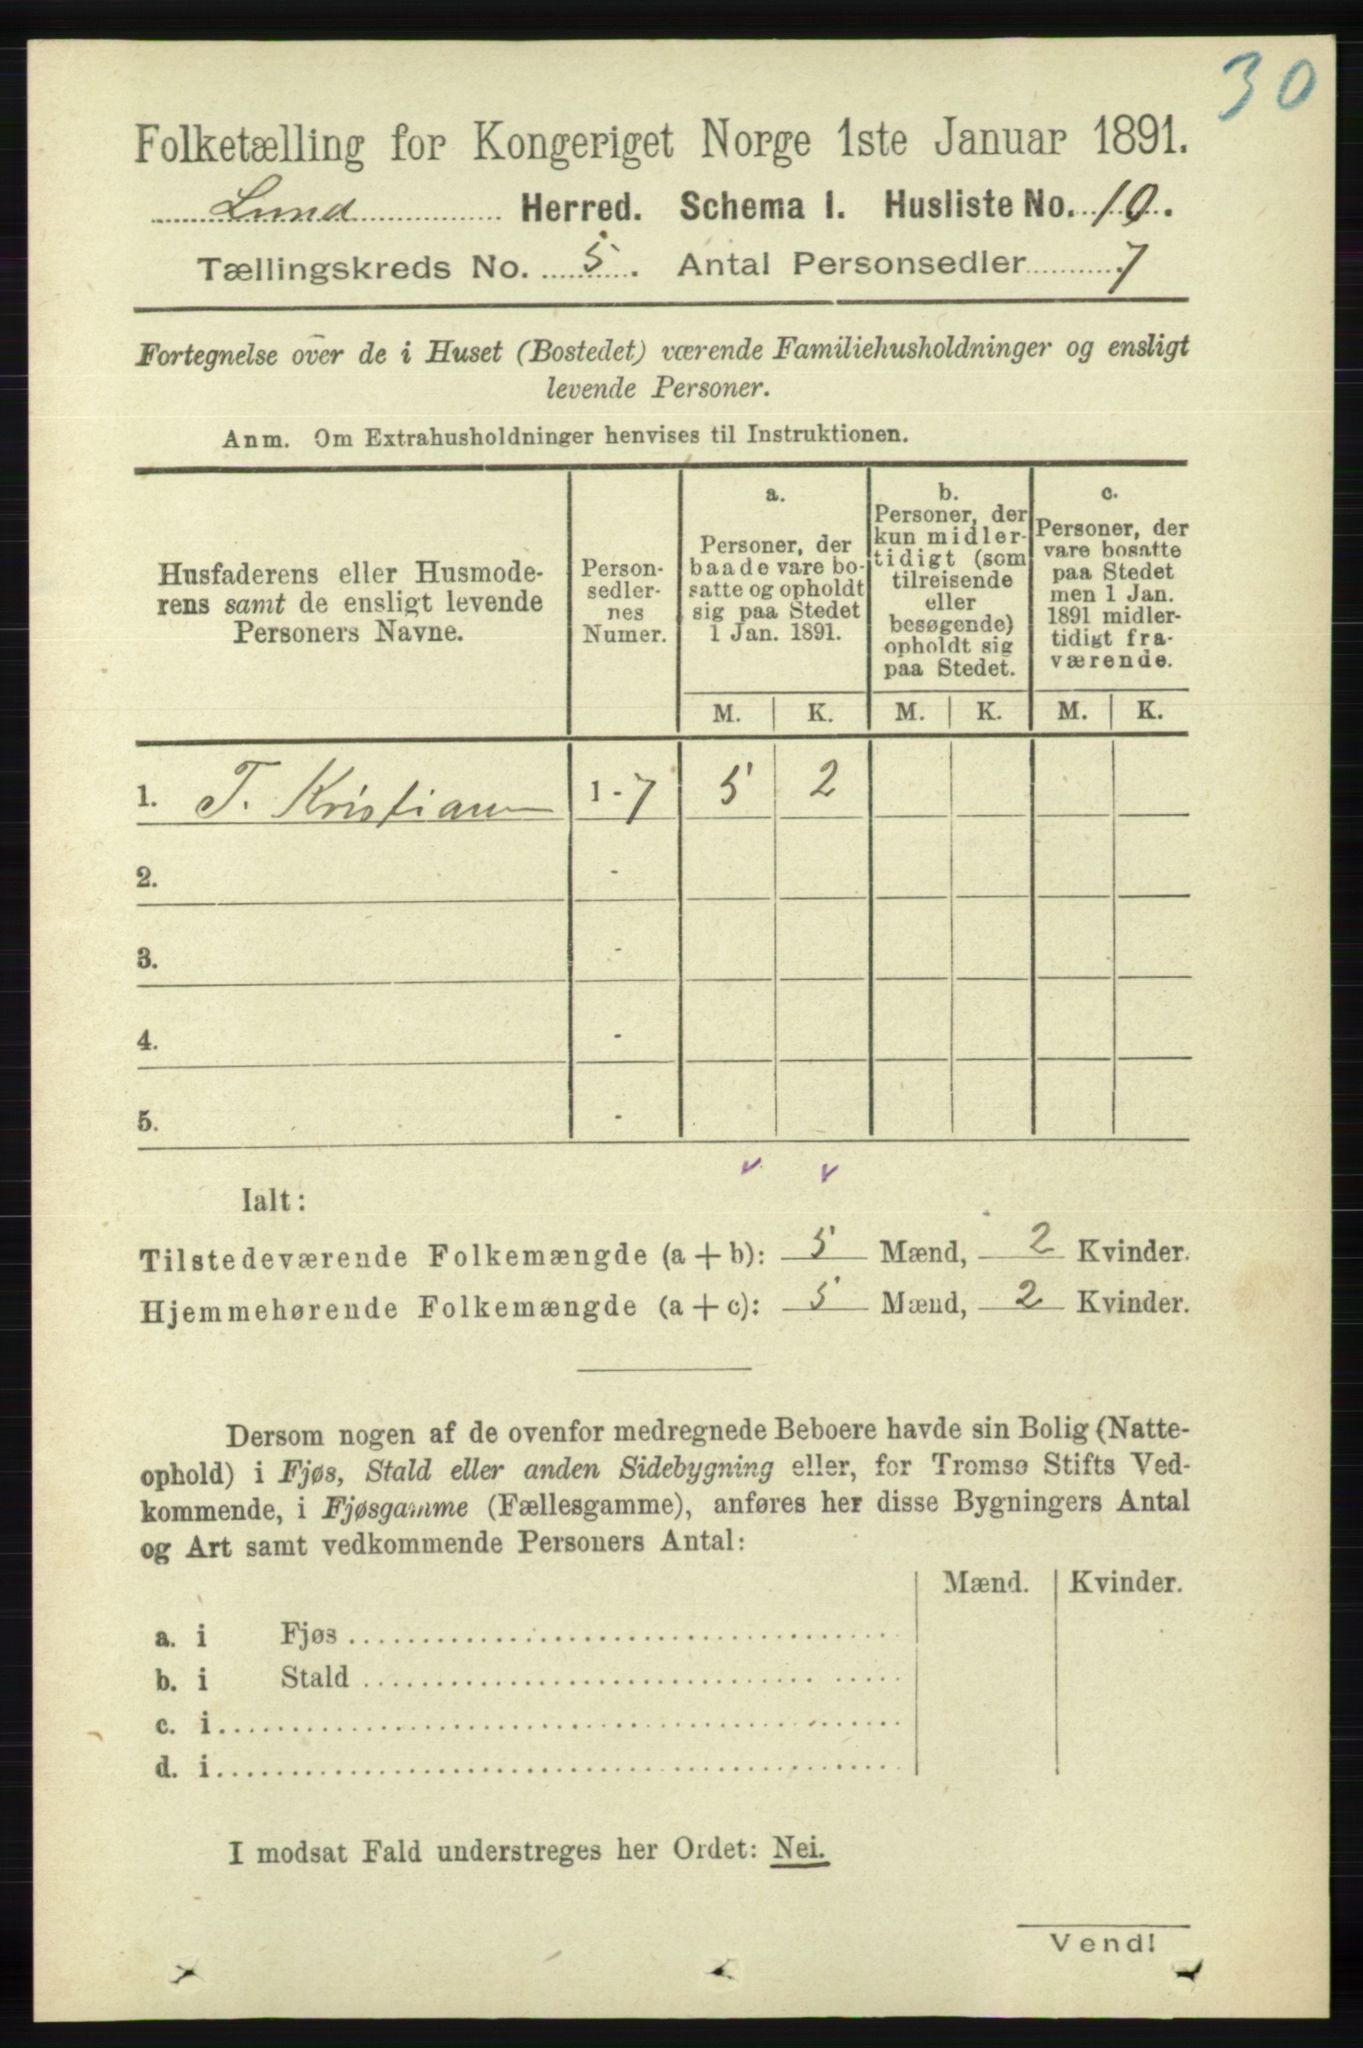 30
Folketælling for Kongeriget Norge 1ste Januar 1891.
Lund Herred. Schema I. Husliste No. 10.
Tællingskreds No. 5. Antal Personsedler 7
Fortegnelse over de i Huset (Bostedet) værende Familiehusholdninger og ensligt
levende Personer.
Anm. Om Extrahusholdninger henvises til Instruktionen.
Husfaderens eller Husmode-
rens samt de ensligt levende
Personers Navne.
Person-
sedler-
nes
Numer.
a.
Personer, der
baade vare bo-
satte og opholdt
sig paa Stedet
1 Jan. 1891.
b.
Personer, der
kun midler-
tidigt (som
tilreisende
eller
besøgende)
opholdt sig
paa Stedet.
c.
Personer, der
vare bosatte
paa Stedet
men 1 Jan.
1891 midler-
tidigt fra-
værende.
M. K. M. K. M. K.
1. T. Kristiansen 1-7 5 2
2. -
3. -
4. -
5. -
Ialt:
Tilstedeværende Folkemængde (a + b): 5 Mænd, 2 Kvinder.
Hjemmehørende Folkemængde (a + c): 5 Mænd, 2 Kvinder.
Dersom nogen af de ovenfor medregnede Beboere havde sin Bolig (Natte-
ophold) i Fjøs, Stald eller anden Sidebygning eller, for Tromsø Stifts Ved-
kommende, i Fjøsgamme (Fællesgamme), anføres her disse Bygningers Antal
og Art samt vedkommende Personers Antal:
Mænd. Kvinder.
a. i Fjøs
b. i Stald
c. i
d. i
I modsat Fald understreges her Ordet: Nei.
Vend!